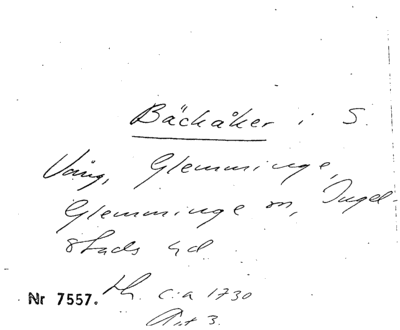 Bäckåker i S.
Vång, Glemminge,
Glemminge sn, Ingel-
stads hd
Nr 7557. Lh. c:a 1730
Akt 3.